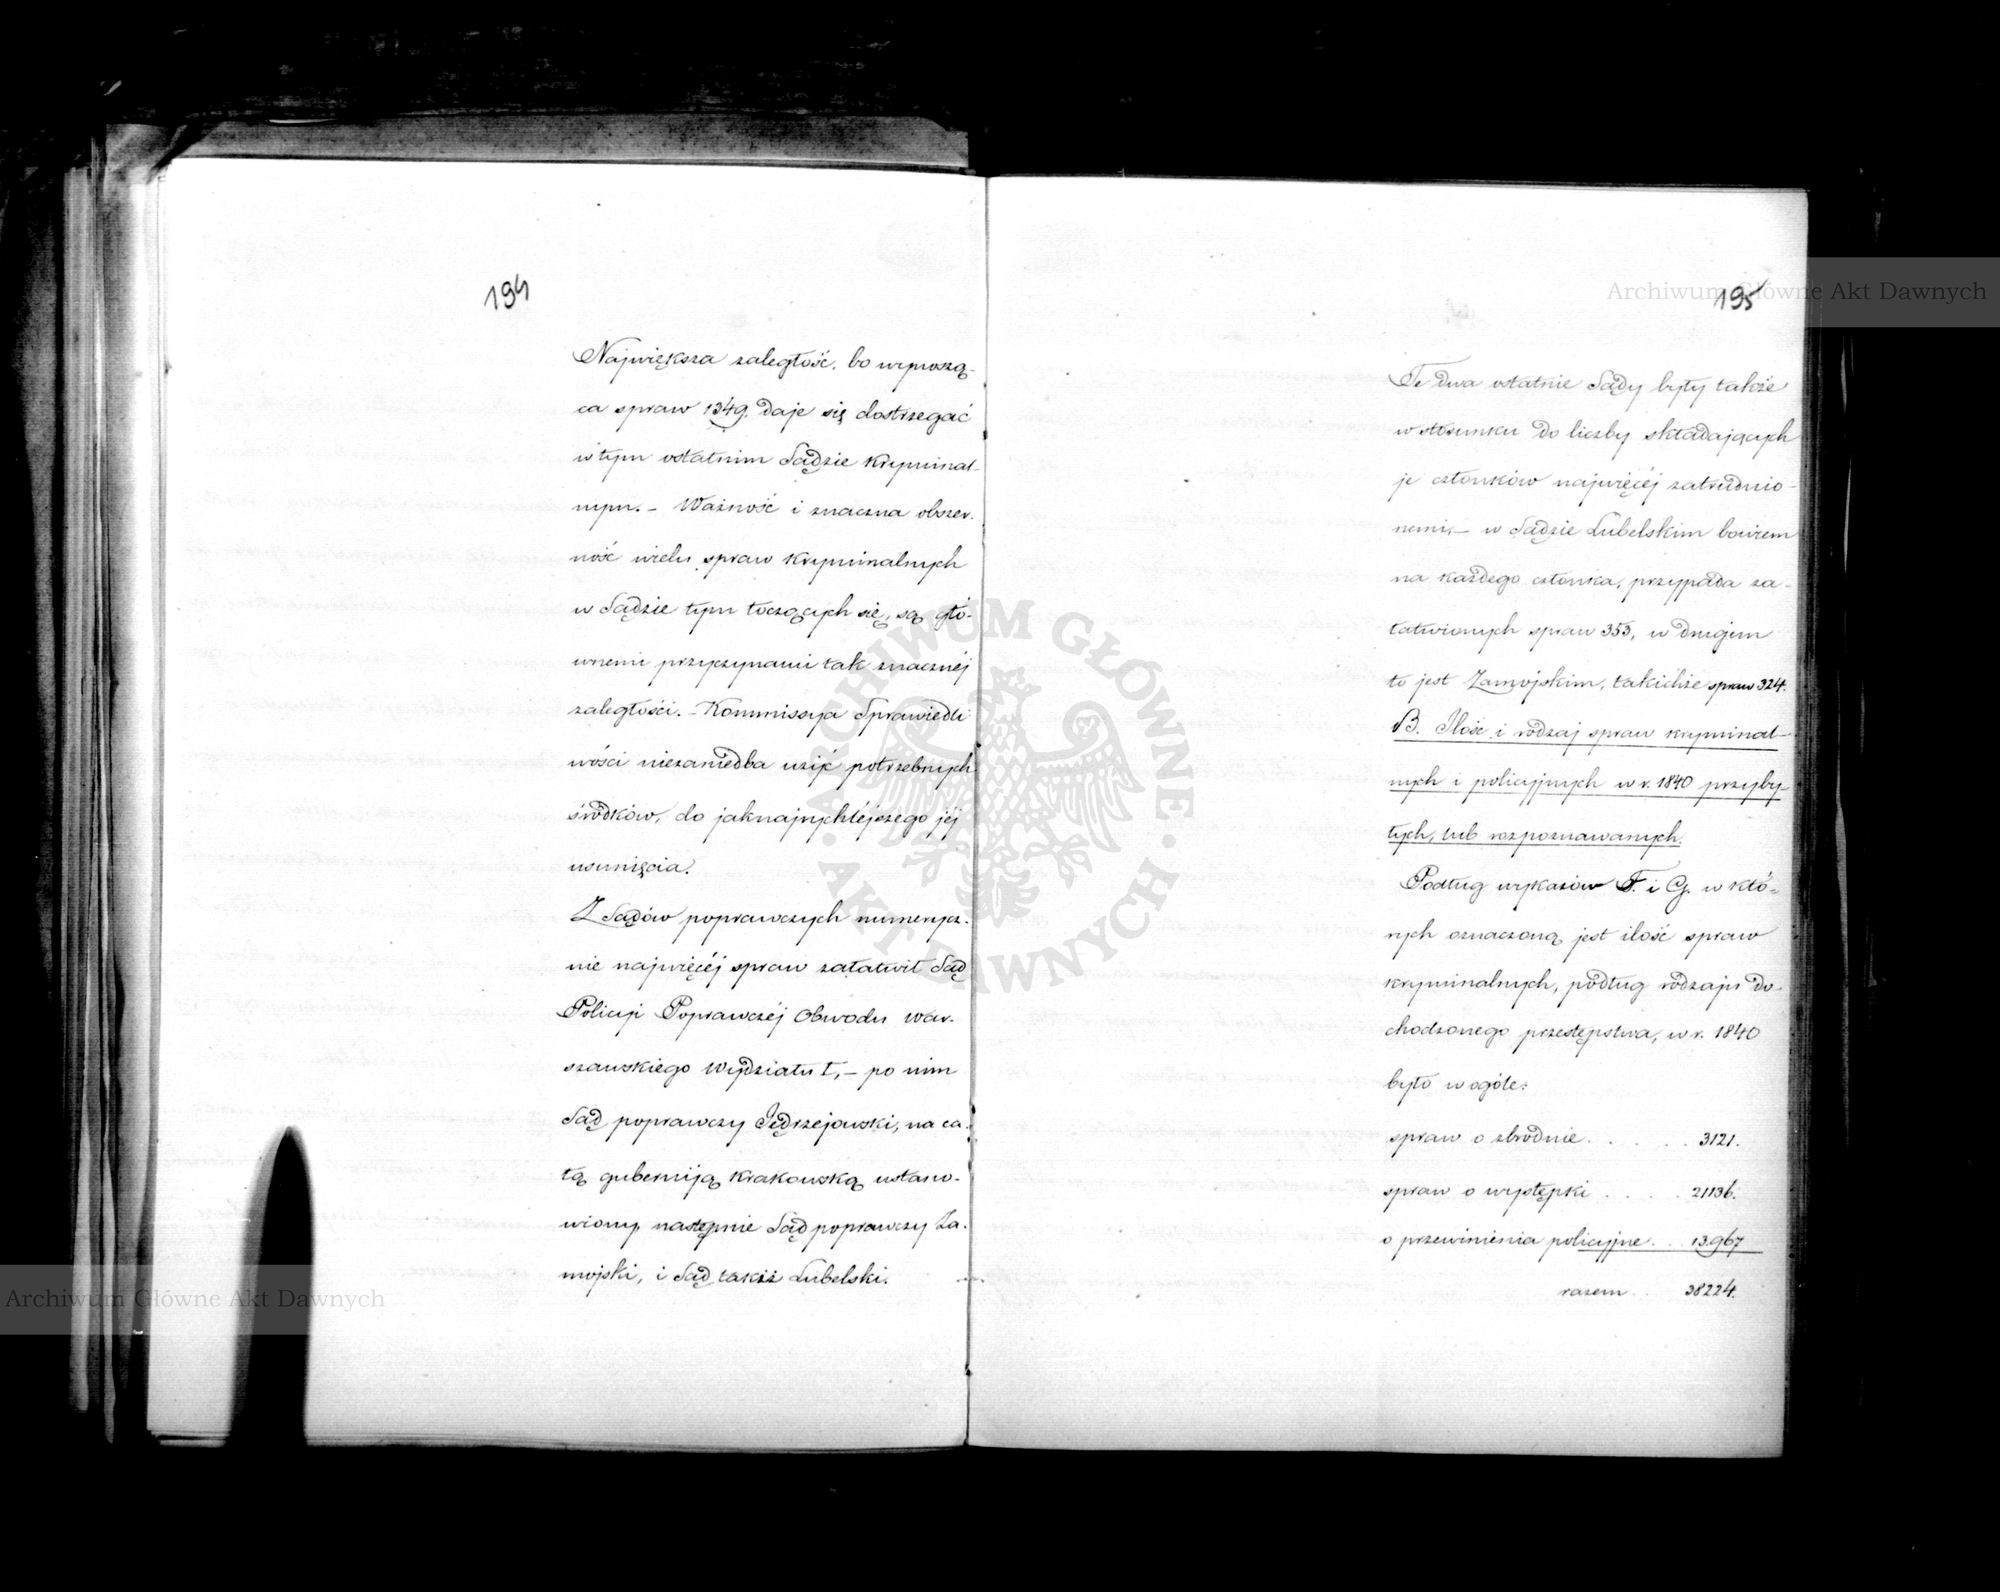 194
Największa zaległość, bo wynoszą-
ca spraw 1349. daje się dostrzegać
w tym ostatnim Sądzie Kryminal-
nym. – Ważność i znaczna obszer-
ność wielu spraw kryminalnych
w Sądzie tym toczących się, są głó-
wnemi przyczynami tak znacznéj
zaległości. – Kommissya Sprawiedli
wości niezaniedba użyć potrzebnych
środków, do jaknajrychléjszego jéj
usunięcia.
Z Sądów poprawczych numerycz-
nie najwięcéj spraw załatwił Sąd
Policyi Poprawczéj Obwodu War-
szawskiego Wydziału I, – po nim
Sąd poprawczy Jędrzejowski, na ca-
łą guberniją Krakowską ustano-
wiony, następnie Sąd poprawczy Za-
mojski, i Sąd takiż Lubelski.
195
Te dwa ostatnie Sądy były także
w stosunku do liczby składających
je członków najwięcéj zatrudnio-
nemi, – w Sądzie Lubelskim bowiem
na każdego członka, przypada za-
łatwionych spraw 353, w drugim
to jest Zamojskim, takichże spraw 324.
B. Ilość i rodzaj spraw kryminal-
nych i policyjnych w r. 1840 przyby-
łych, lub rozpoznawanych.
Podług wykazów F. i G. w któ-
rych oznaczoną jest ilość spraw
kryminalnych, podług rodzaju do-
chodzonego przestępstwa, w r. 1840
było w ogóle:
spraw o zbrodnie . . . . . 3121.
spraw o występki . . . . . 21136.
o przewinienia policyjne . . . 13.967
razem . . 38224.
Archiwum Główne Akt Dawnych
Archiwum Główne Akt Dawnych
ARCHIWUM GŁÓWNE
AKT DAWNYCH